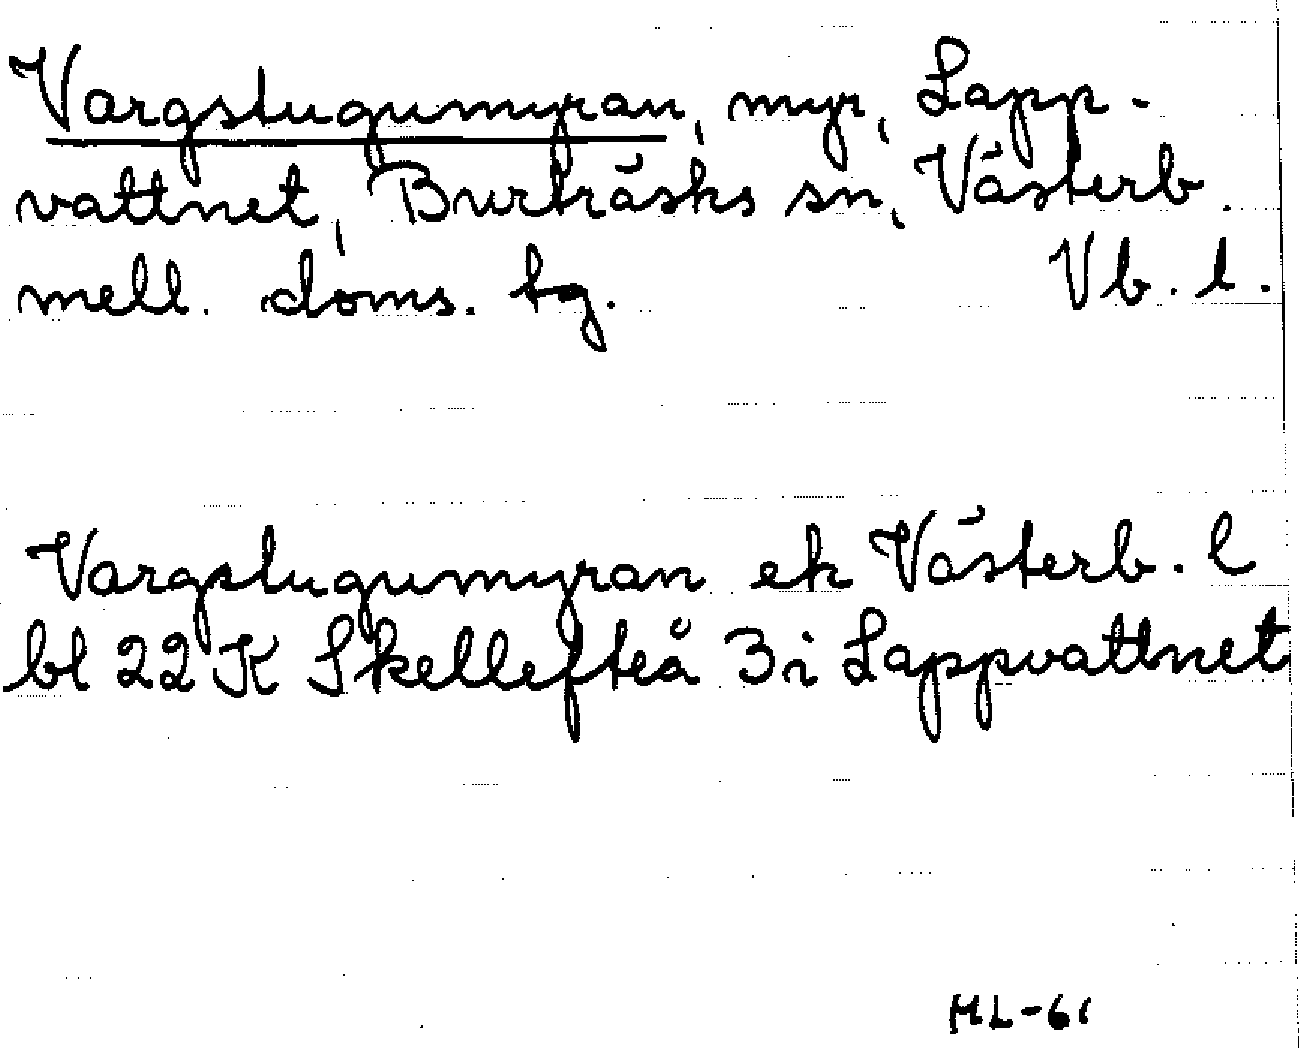 Vargstugumyran, myr, Lapp-
vattnet, Burträsks sn, Västerb.
mell. doms. tg. Vb. l.
Vargstugumyran ek Västerb. l
bl 22 K Skellefteå 3i Lappvattnet
HL-61